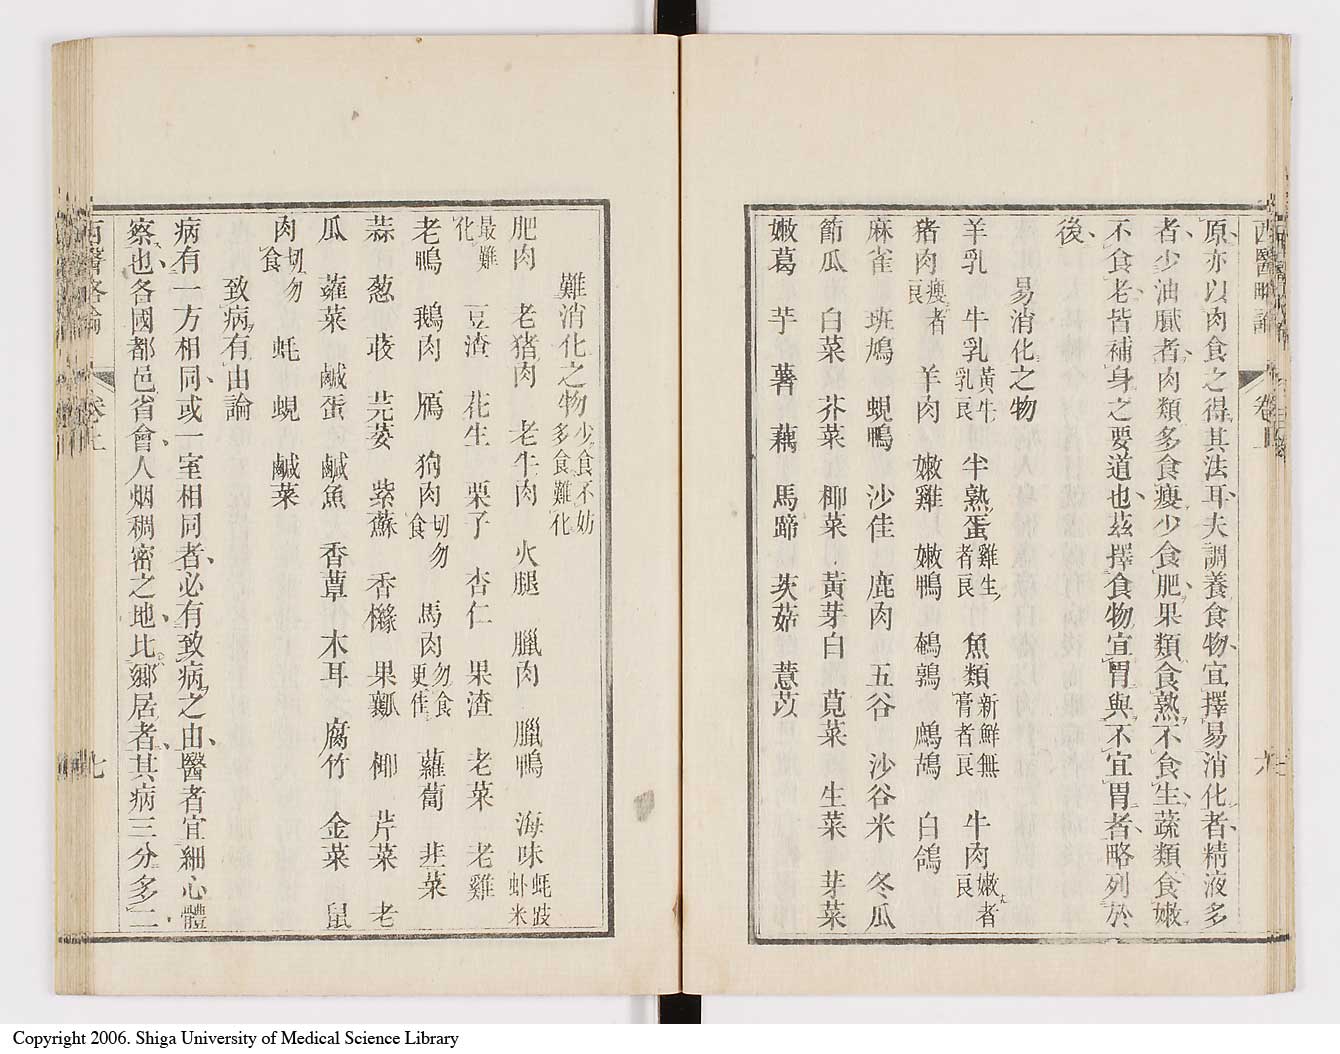 原亦以肉食之得其法耳夫調養食物宜擇易消化者精液多
者少油膩者肉類多食瘦少食肥果類食熟不食生蔬類食嫩
不食老皆補身之要道也茲擇食物宜胃與不宜胃者略列於
後
易消化之物
羊乳 牛乳黃牛乳良 半熟蛋雞生者良 魚類新鮮無膏者良 牛肉嫩者良
猪肉瘦者良 羊肉 嫩雞 嫩鴨 鵪鶉 鷓鴣 白鴿
麻雀 班鳩 蜆鴨 沙隹 鹿肉 五谷 沙谷米 冬瓜
節瓜 白菜 芥菜 椰菜 黃芽白 莧菜 生菜 芽菜
嫩葛 芋 薯 藕 馬蹄 茨菇 薏苡
難消化之物少食不妨多食難化
肥肉 老猪肉 老牛肉 火腿 臘肉 臘鴨 海味蚝豉虲米
最難化 豆渣 花生 栗子 杏仁 果渣 老菜 老雞
老鴨 鵝肉 鴈 狗肉切勿食 馬肉勿食更佳 蘿蔔 韭菜
蒜 葱 䓤 芫荽 紫蘇 香櫞 果瓤 椰 芹菜 老
瓜 蕹菜 鹹蛋 鹹魚 香蕈 木耳 腐竹 金菜 鼠
肉切勿食 蚝 蜆 鹹菜
致病有由論
病有一方相同或一室相同者必有致病之由醫者宜細心體
察也各國都邑省會人烟稠密之地比鄉居者其病三分多二
西醫略論 卷上 七
Copyright 2006. Shiga University of Medical Science Library